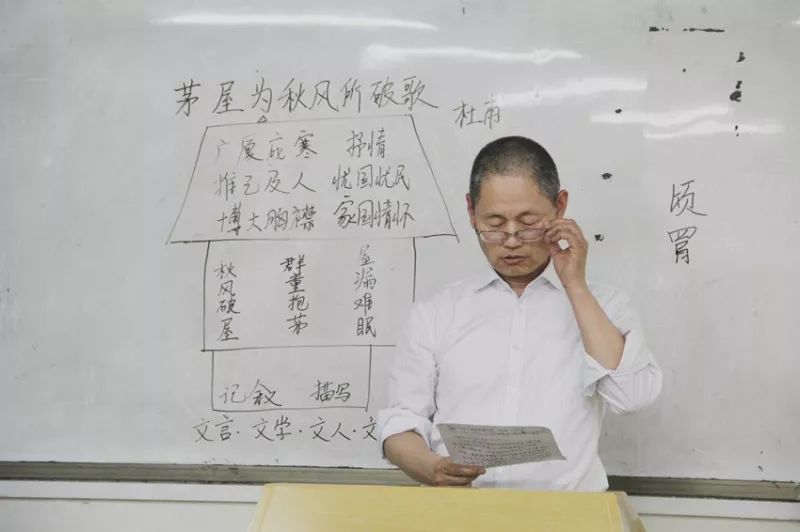 茅屋为秋风所破歌
杜甫
广厦庇寒 抒情
推己及人 忧国忧民
博大胸襟 家国情怀
秋风破屋
群童抱茅
屋漏难眠
记叙 描写
文言·文学·文人·文
顷
罥